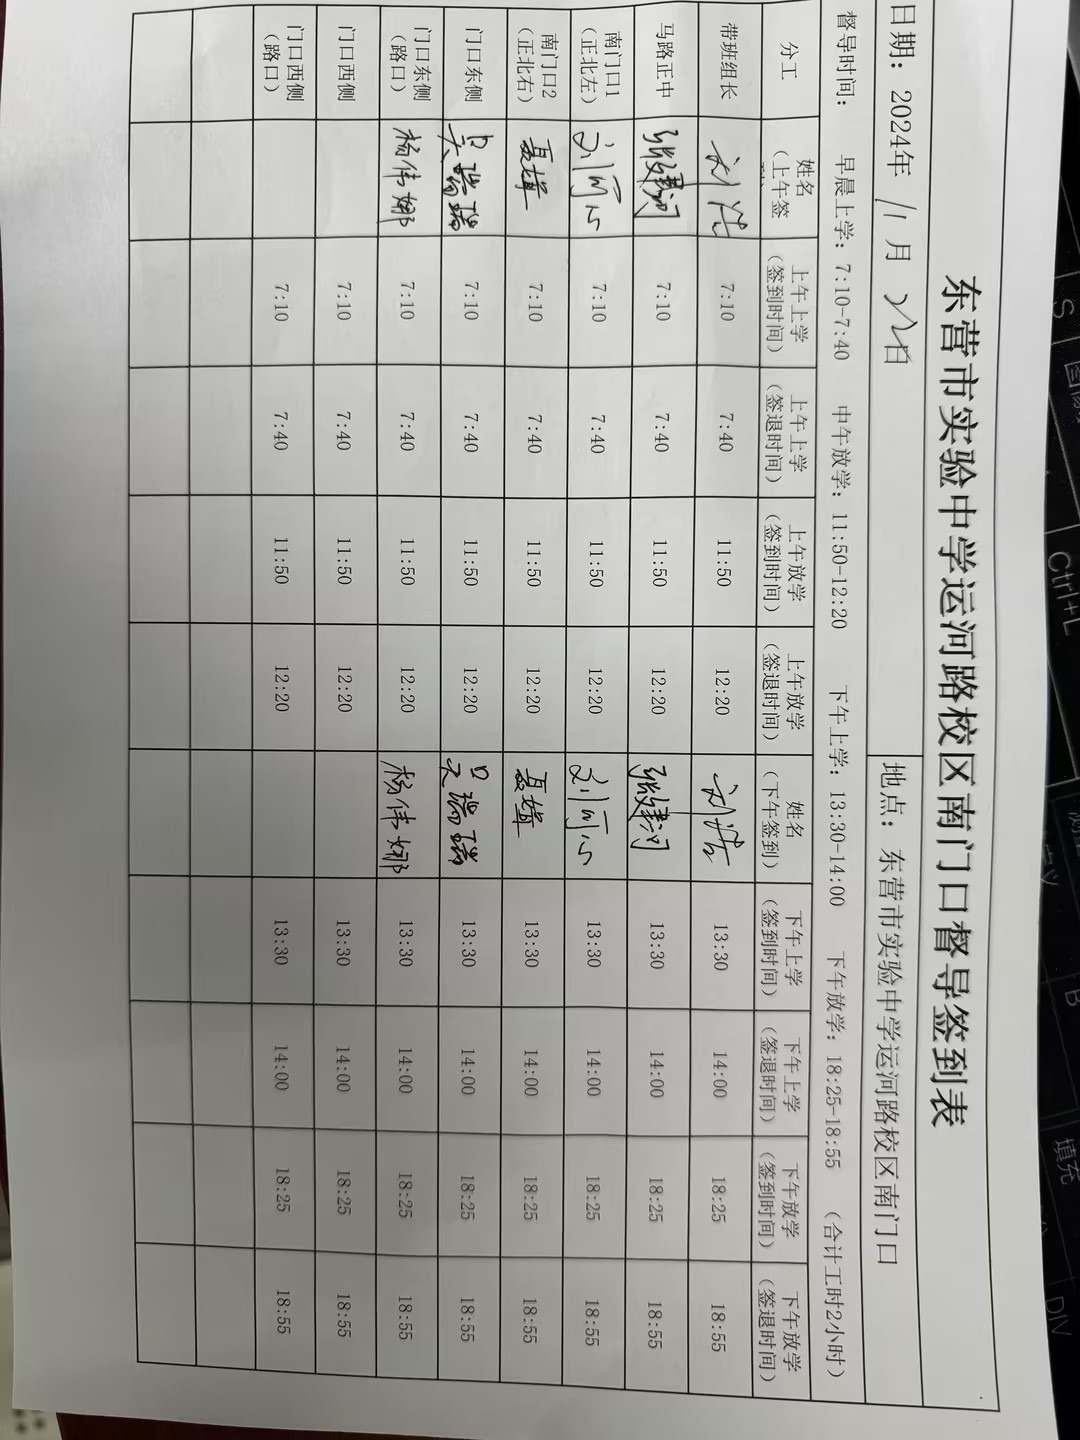 东营市实验中学运河路校区南门口督导签到表
日期：2024年 11月 日 地点：东营市实验中学运河路校区南门口
督导时间： 早晨上学：7:10-7:40 中午放学：11:50-12:20 下午上学：13:30-14:00 下午放学：18:25-18:55 （合计工时2小时）
分工 姓名（上午签 上午上学（签到时间） 上午上学（签退时间） 上午放学（签到时间） 上午放学（签退时间） 姓名（下午签到） 下午上学（签到时间） 下午上学（签退时间） 下午放学（签到时间） 下午放学（签退时间）
带班组长 刘浩 7:10 7:40 11:50 12:20 刘浩 13:30 14:00 18:25 18:55
马路正中 张建河 7:10 7:40 11:50 12:20 张建河 13:30 14:00 18:25 18:55
南门口1（正北左） 7:10 7:40 11:50 12:20 13:30 14:00 18:25 18:55
南门口2（正北右） 7:10 7:40 11:50 12:20 13:30 14:00 18:25 18:55
门口东侧 吴瑞瑞 7:10 7:40 11:50 12:20 吴瑞瑞 13:30 14:00 18:25 18:55
门口东侧（路口） 杨伟娜 7:10 7:40 11:50 12:20 杨伟娜 13:30 14:00 18:25 18:55
门口西侧 7:10 7:40 11:50 12:20 13:30 14:00 18:25 18:55
门口西侧（路口） 7:10 7:40 11:50 12:20 13:30 14:00 18:25 18:55
S
Ctrl+L
B
填充
DIV